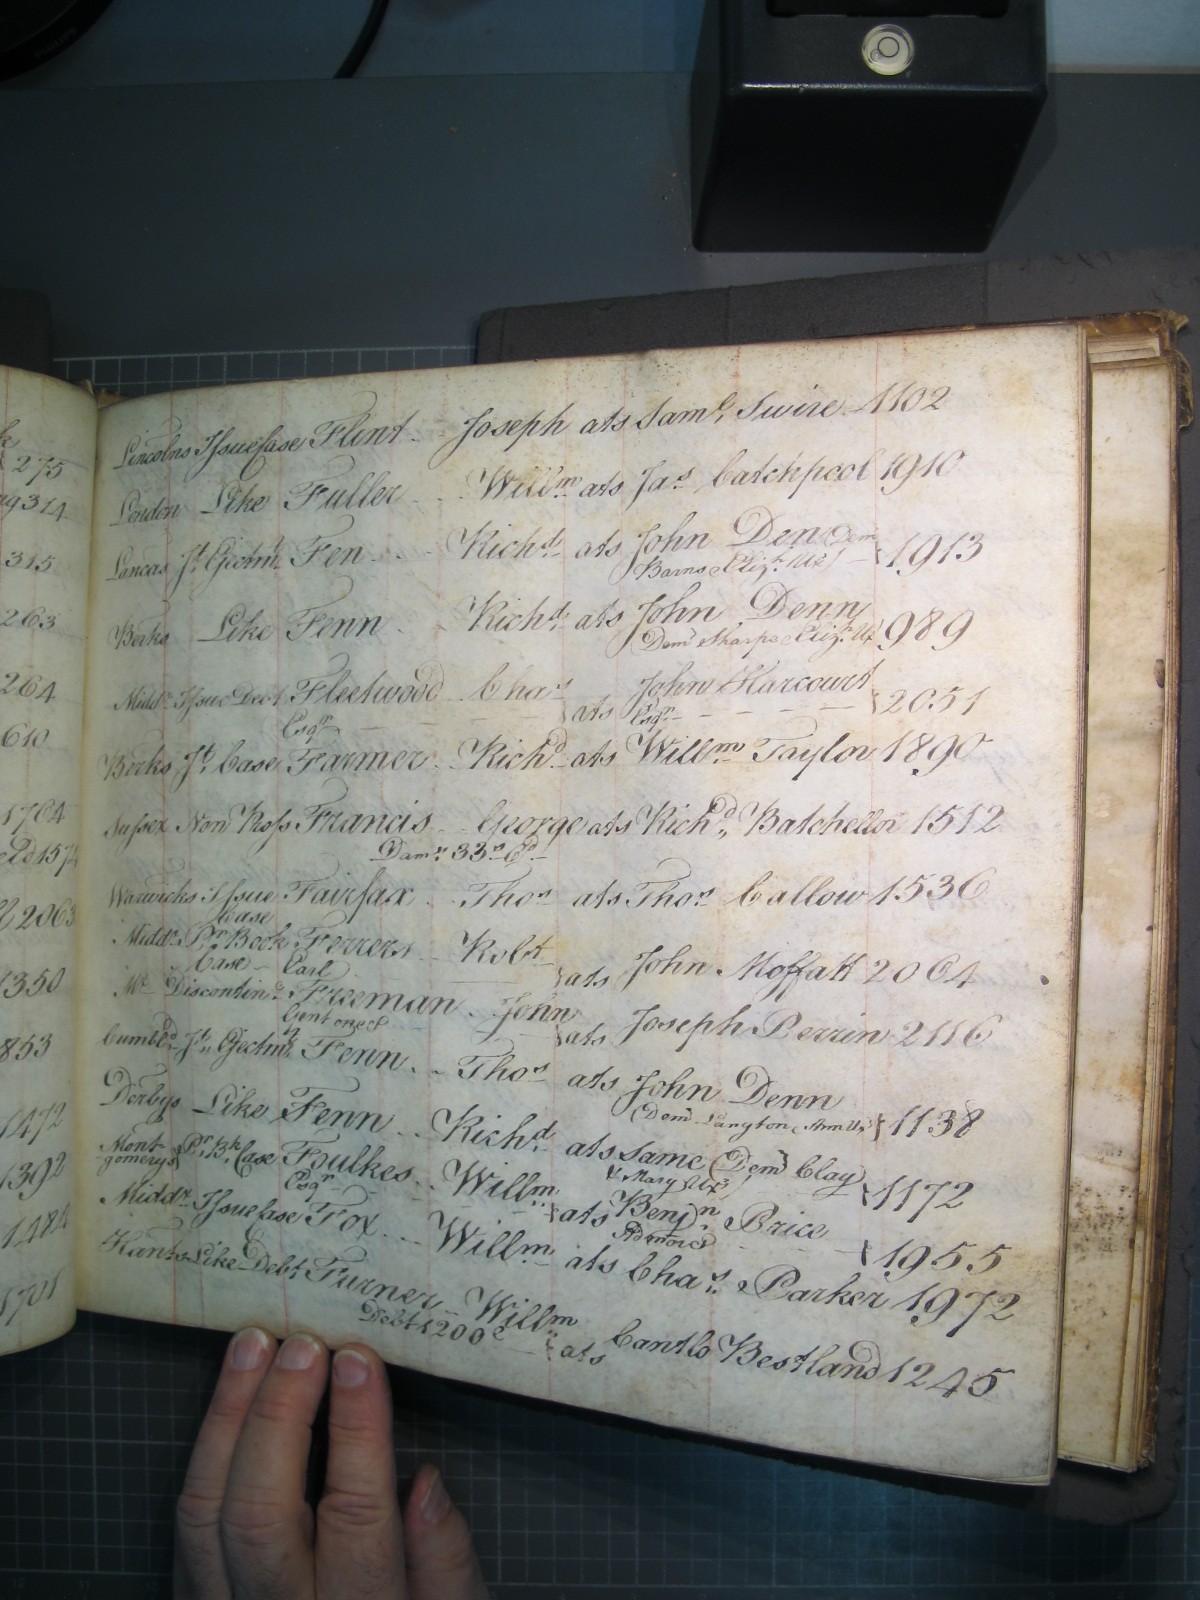 275
314
315
263
264
610
1764
2063
1350
853
1472
1392
1484
1701
Lincolns Issue Case Flint Joseph ats Saml. Swire 1102
London Like Fuller Willm ats Jas Catchpool 1910
Lancas Jt. Ejectmt. Fen Richd ats John Den (Dem
Barns & Elizt. Ux) 1913
Berks Like Fenn Richd. ats John Denn
(Demd Sharpe & Elizt. Ux 989
Middx Issue Debt Fleetwood Chas ats John Harcourt
Esqr Esqr 2051
Berks Jt. Case Farmer Richd ats Willm Taylor 1890
Sussex Non Pross Francis George ats Richd. Batchellor 1512
Dams. 33s 6d
Warwicks Issue Fairfax Thos ats Thos Callow 1536
Case
Middx Pr Book Ferrers Robt ats John Moffatt 2064
Case Earl
Mx Discontind Freeman John ats Joseph Perrin 2116
Gent one &c
Cumbld Jt. Ejectmt Fenn Thos ats John Denn
(Demd Langton & Ann Ux) 1138
Derbys Like Fenn Richd ats same (Demd Clay
& Mary Ux) 1172
Montgomerys Pr. Bk. Case Foulkes Willm ats Benjn Price
Esqr 1955
Middx Issue Case Fox Willm ats Chas. Parker 1972
Hants Like Debt Furner Willm ats Cantlo Bestland 1245
Debt £200